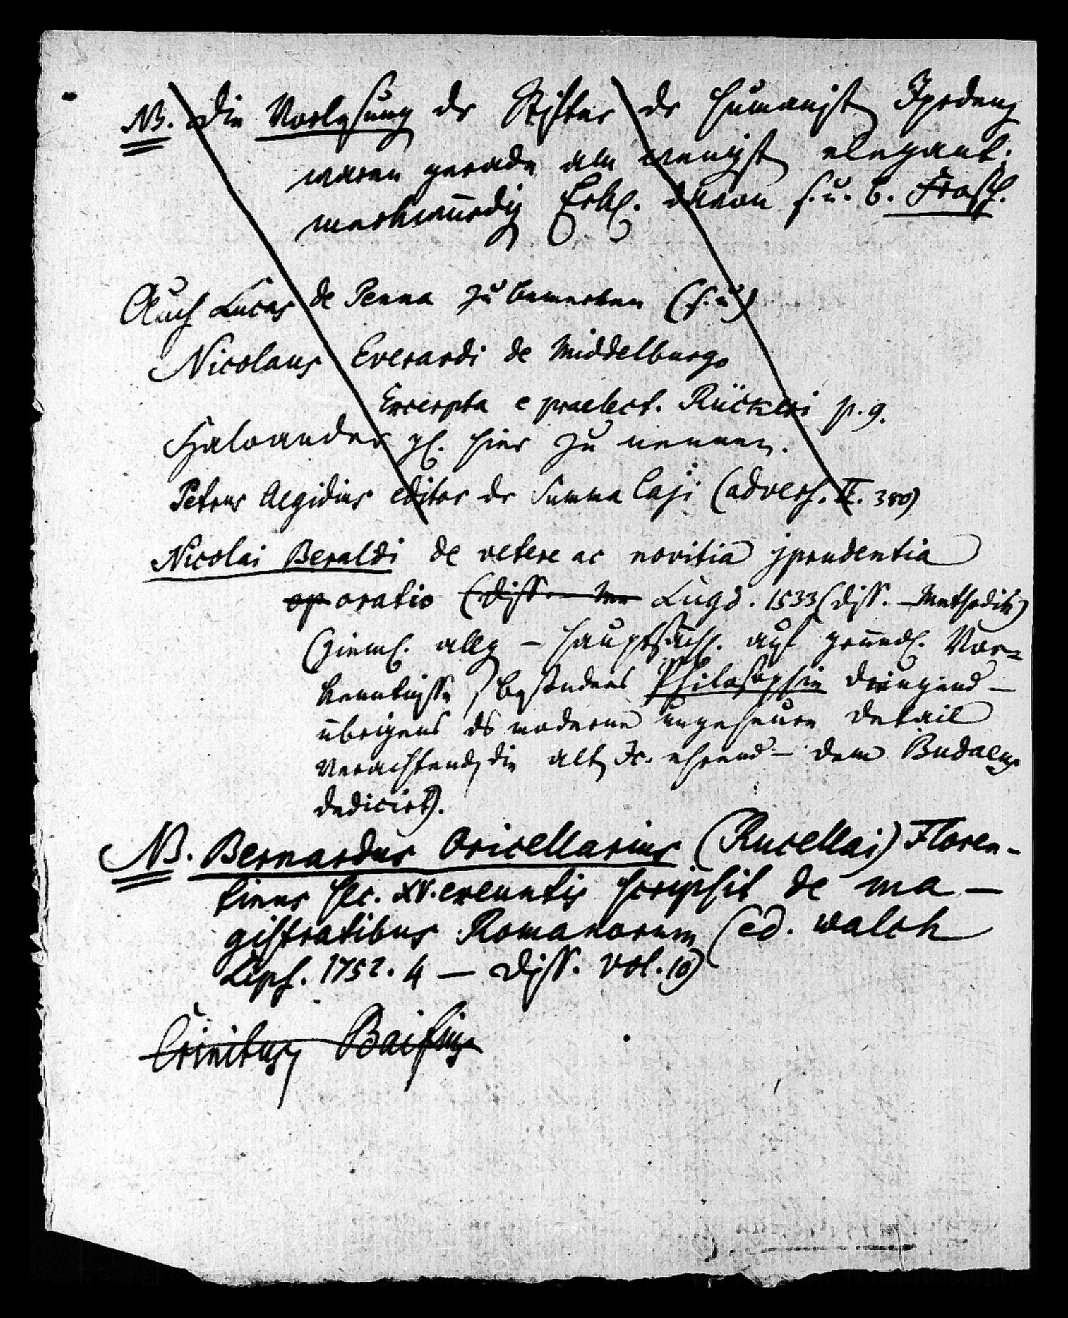 NB. Die Vorlesung der Stifter der humanist Jprdenz
waren gerade am wenigst elegant.
merkwürdig Erkl. davon s. u. b.
Auch Lucas de Penna zu bemerken (s. u)
Nicolaus Everardi de Middelburgo
Excerpta e praelect. Rückeri p. 9.
Haloander gl. hier zu nennen.
Petrus Aegidius editor der Summa Caji (advers. II. 380)
Nicolai Beraldi de vetere ac novitia jprudentia
op oratio (diss. Lugd. 1533 (diss. – Methodik)
(zieml. allg – hauptsächl. auf gründl. Vor=
kenntnisse, besonders Philosophie dringend –
übrigens ds moderne ungeheure Detail
verachtend, die alt Jc. ehrend – dem Budaeus
dedicirt).
NB. Bernardus Oricellarius (Rucellai) Floren-
tinus sec. XV. exeuntis scripsit de ma –
gistratibus Romanorum (ed. walch
Lips. 1752. 4 – diss. vol. 10)
Crinitus, Baifius